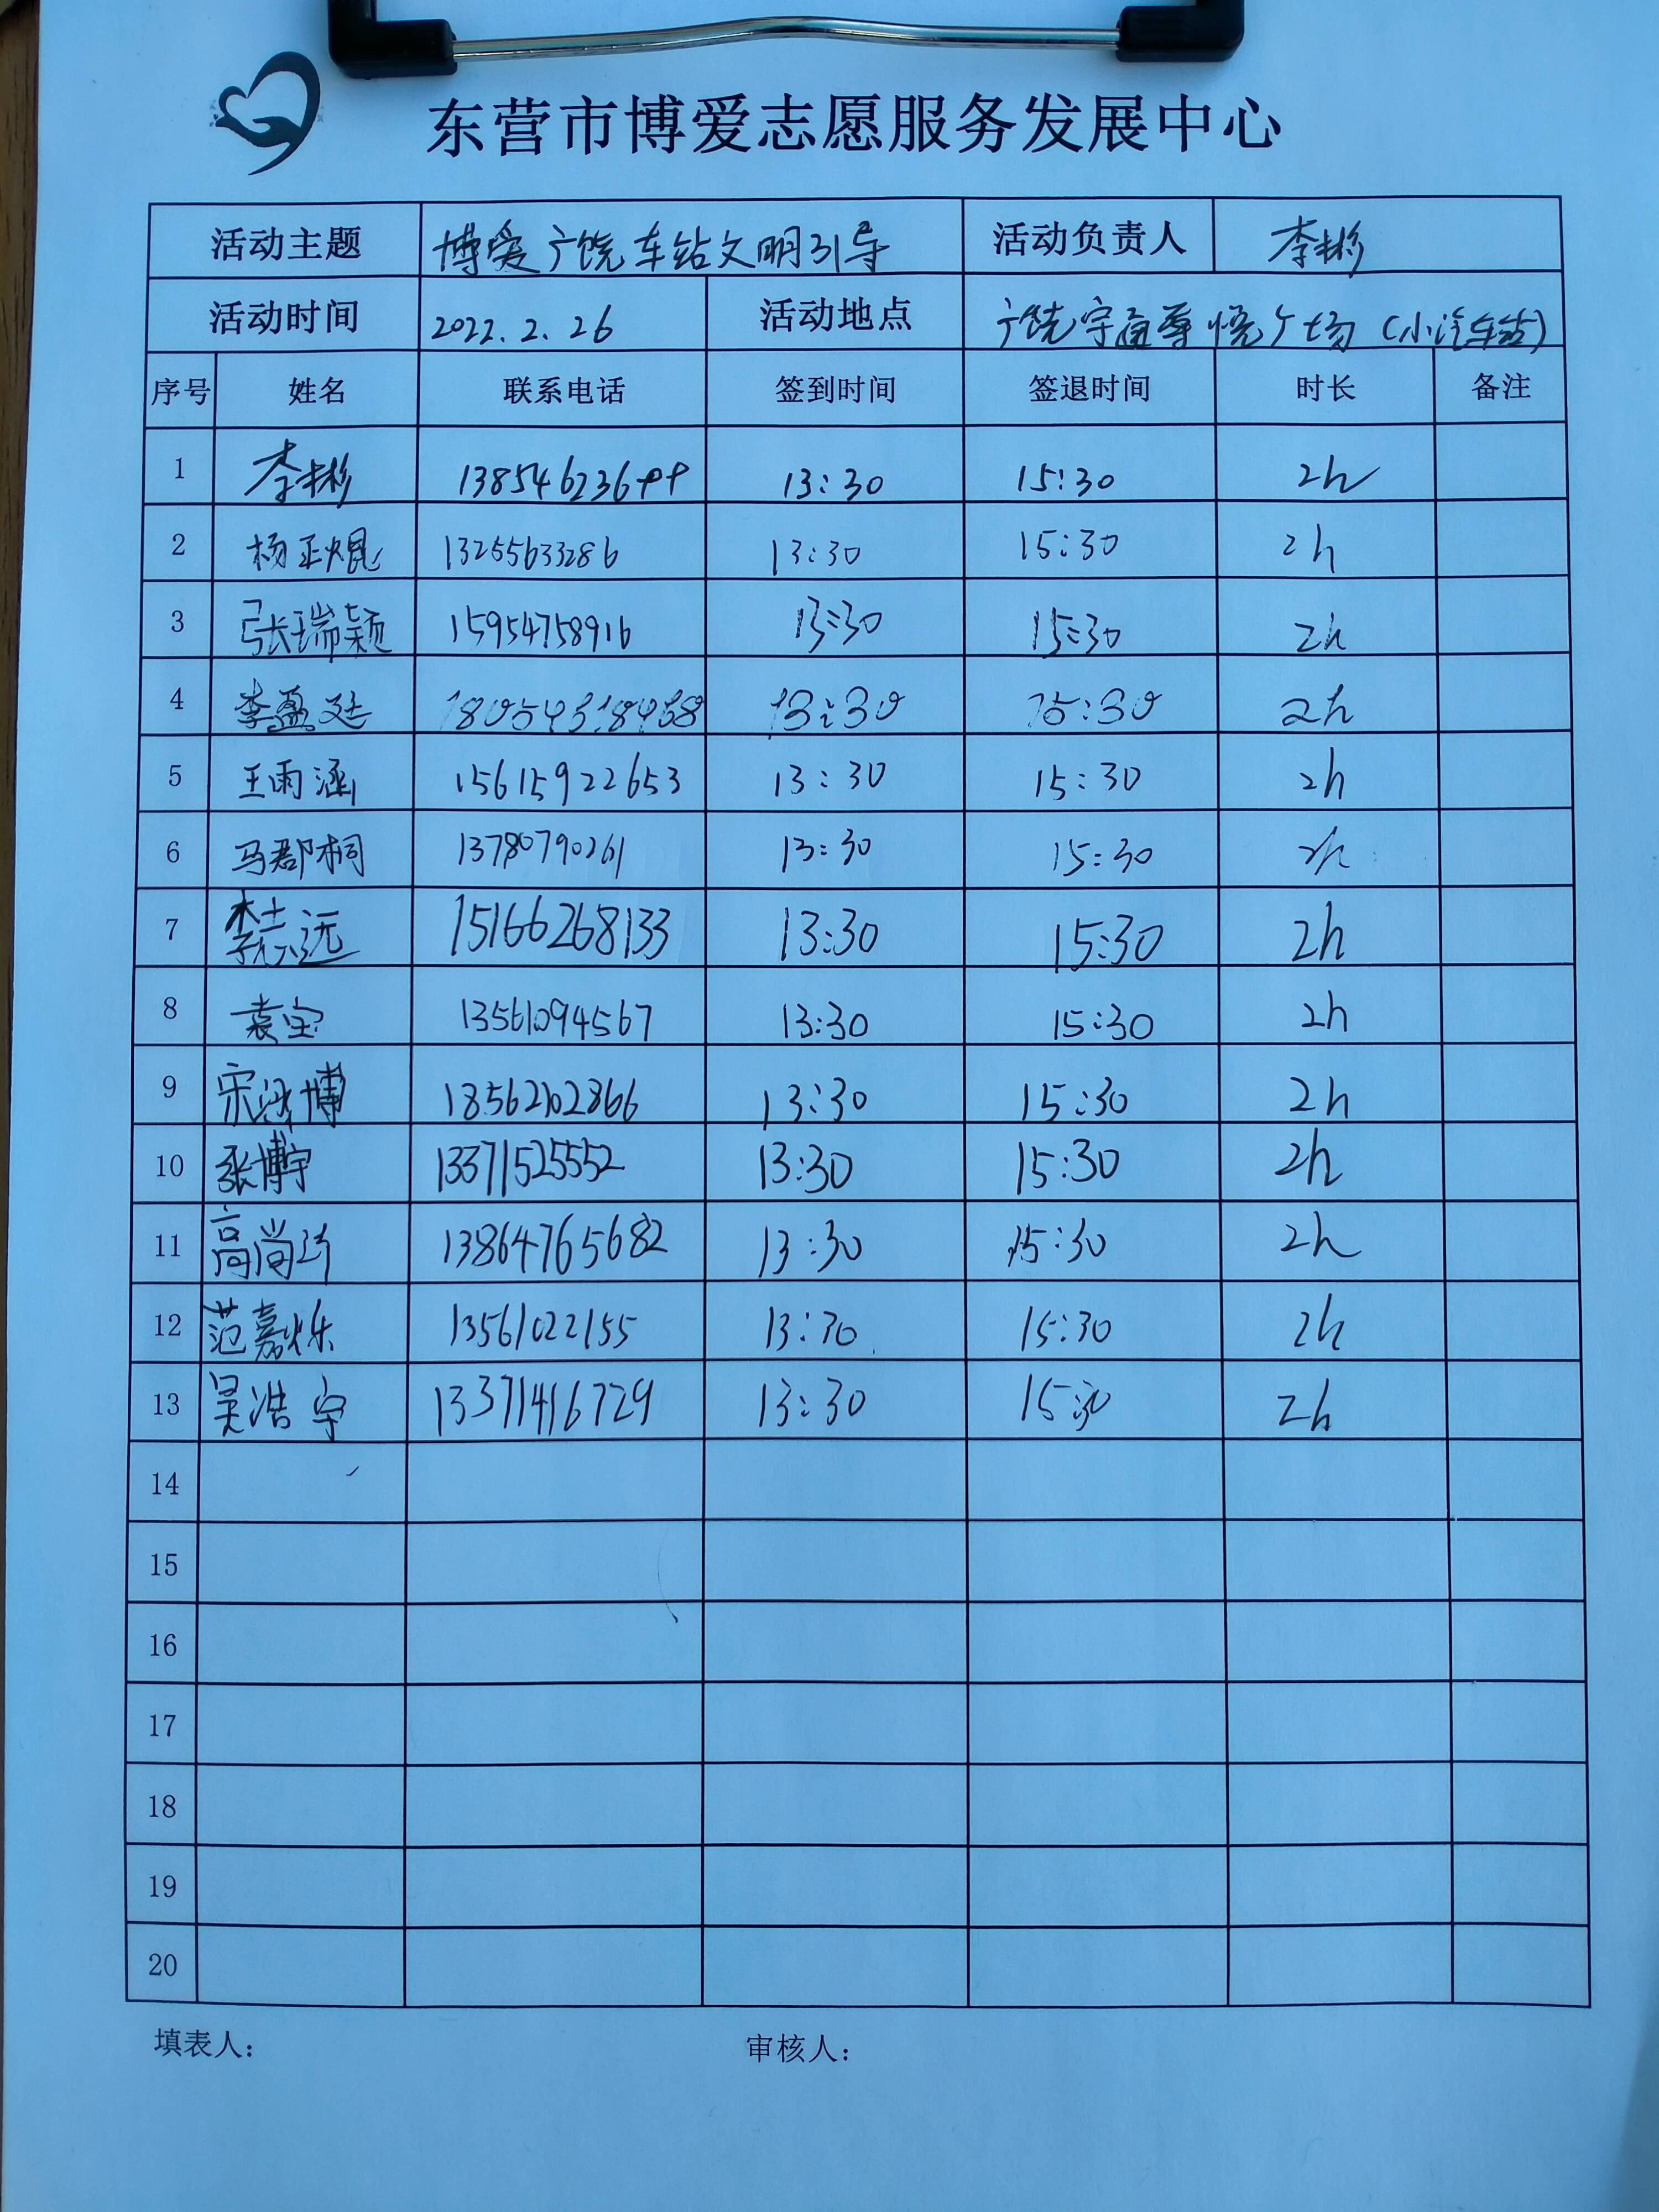 东营市博爱志愿服务发展中心
活动主题 博爱广饶车站文明引导 活动负责人 李彬
活动时间 2022.2.26 活动地点 广饶宇通尊悦广场(小汽车站)
序号 姓名 联系电话 签到时间 签退时间 时长 备注
1 李彬 138546236 13:30 15:30 2h
2 杨正焜 13255633286 13:30 15:30 2h
3 张瑞颖 15954758916 13:30 15:30 2h
4 李盈廷 13:30 15:30 2h
5 王雨涵 15615922653 13:30 15:30 2h
6 马郡桐 13780790261 13:30 15:30 2h
7 李志远 15166268133 13:30 15:30 2h
8 袁宝 13561094567 13:30 15:30 2h
9 宋 博 18562102866 13:30 15:30 2h
10 张博宇 13371525552 13:30 15:30 2h
11 高尚 13864765682 13:30 15:30 2h
12 范嘉烁 13561022155 13:30 15:30 2h
13 吴浩宇 13371416729 13:30 15:30 2h
14
15
16
17
18
19
20
填表人: 审核人: